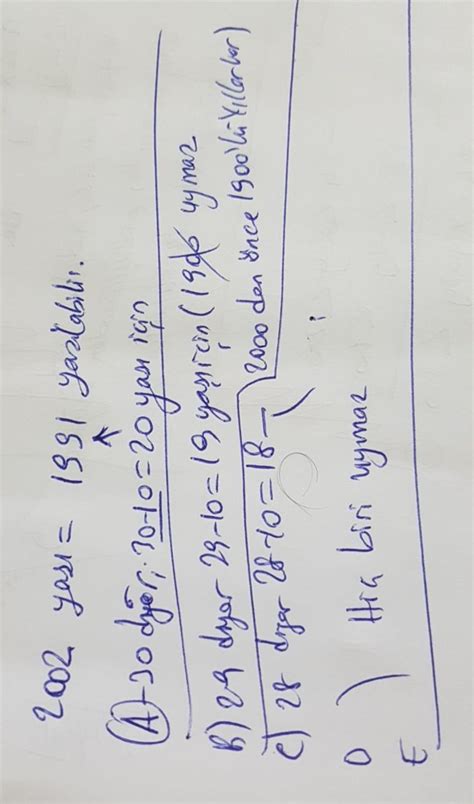 2002 yası = 1991 yazılabilir.
(A) - 30 diyor, 30-10=20 yası için
B) 29 diyor 29-10=19 yaşı için (1906 uymaz
C) 28 diyor 28-10=18 — 2000 den önce 1900'lü yıllar var)
D ) Hiç biri uymaz
E